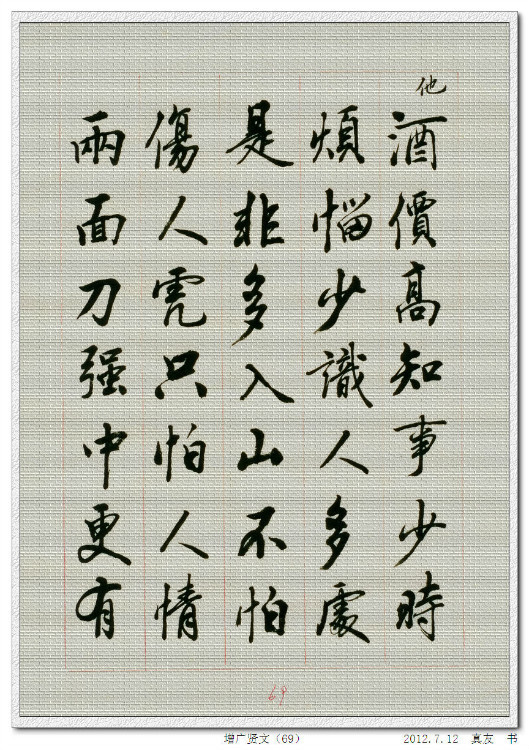 他
酒價高知事少時
煩惱少識人多處
是非多入山不怕
傷人虎只怕人情
兩面刀强中更有
69
增广贤文（69）
2012.7.12 真友 书